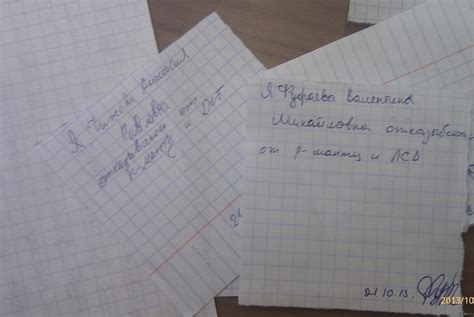 Я,
Павловна
отказываюсь от
р-манту и
Я Фуфаева Валентина
Михайловна отказываюсь
от р-манту и ЛСД
21.10.13.
2013/10